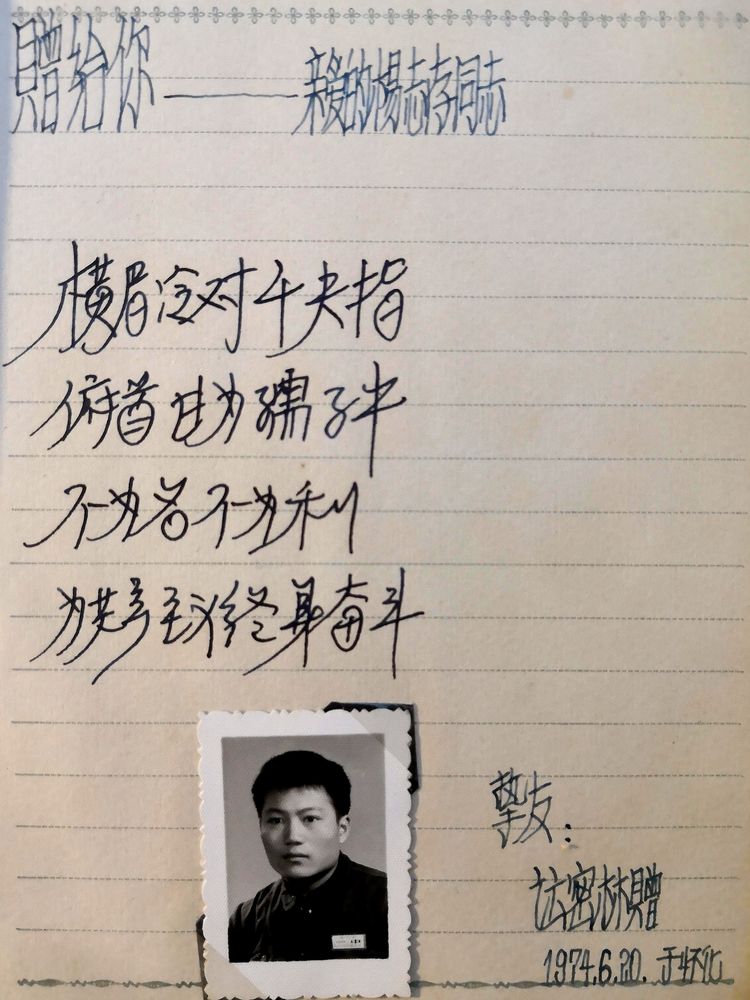 贈给你——亲爱的楊志存同志
横眉冷对千夫指
俯首甘为孺子牛
不为名不为利
为共产主义终身奋斗
挚友:
密林贈
1974.6.20.于怀化